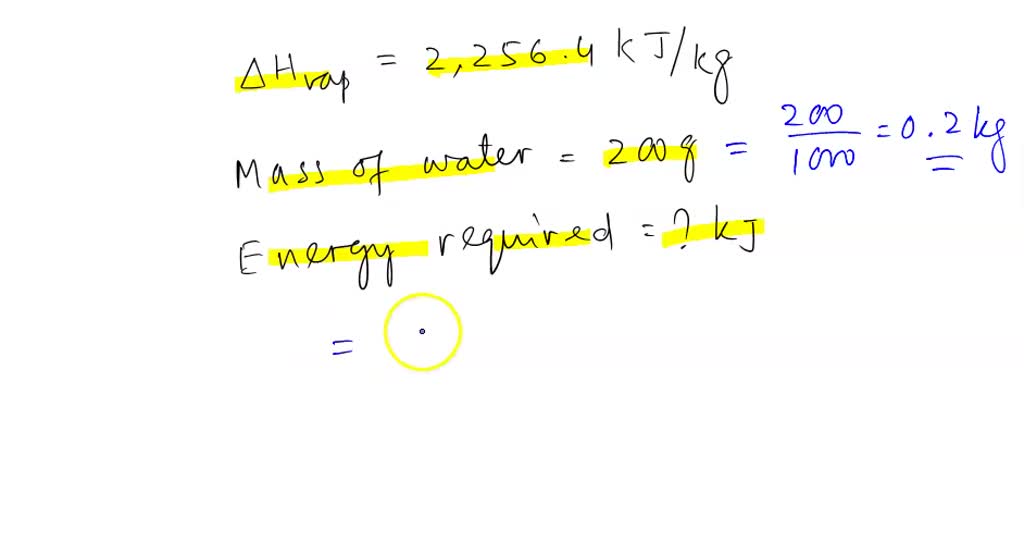 ΔHvap = 2,256.4 kJ/kg
Mass of water = 200g = 200/1000 = 0.2 kg
Energy required = ? kJ
=